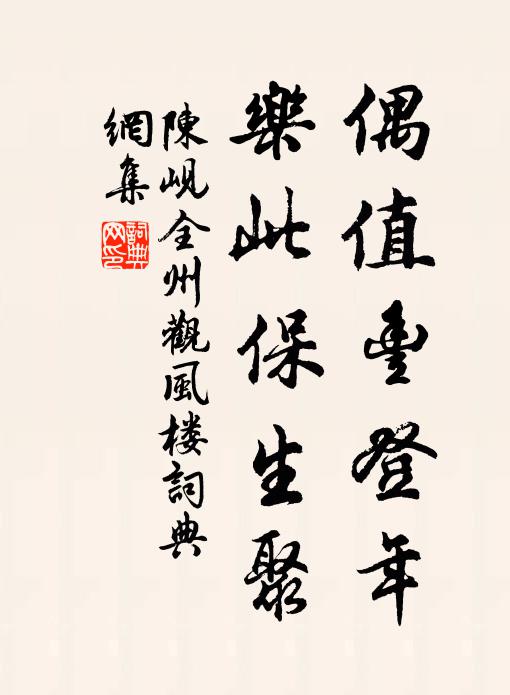 偶值豊登年
樂此保生聚
陳峴全州觀風楼詞典
網集
詞典網印